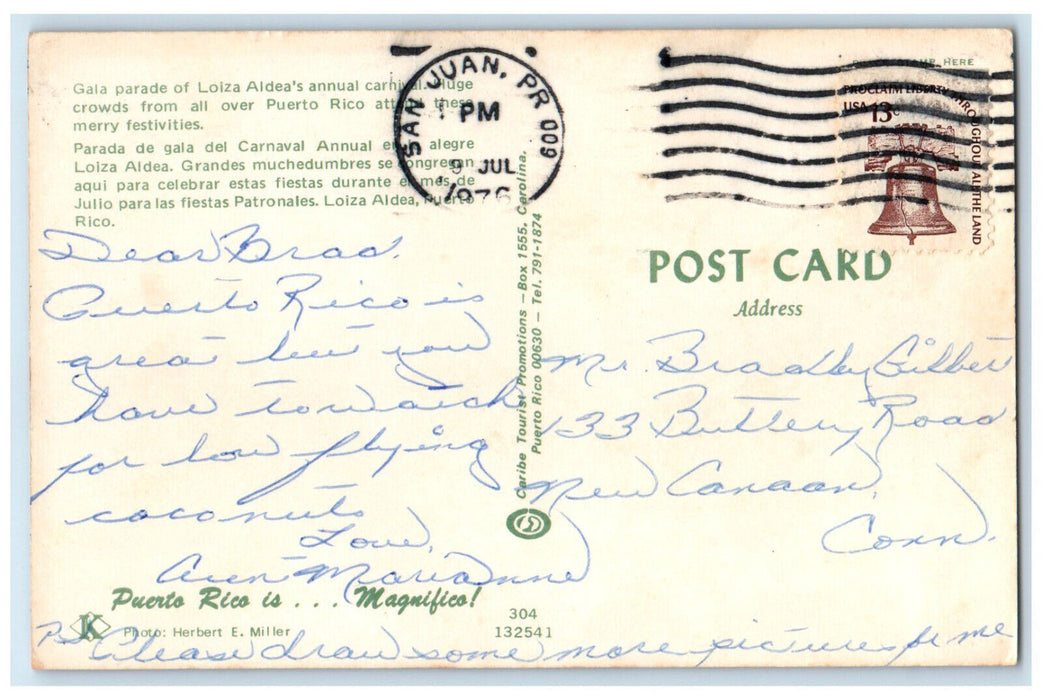 Gala parade of Loiza Aldea's annual carnival. Huge
crowds from all over Puerto Rico attend these
merry festivities.
Parada de gala del Carnaval Annual en la alegre
Loiza Aldea. Grandes muchedumbres se congregan
aqui para celebrar estas fiestas durante el mes de
Julio para las fiestas Patronales. Loiza Aldea, Puerto
Rico.
Dear Brad,
Puerto Rico is
great but you
have to watch
for low flying
coconuts
Love,
Aunt Marianne
Puerto Rico is . . . Magnifico!
K
Photo: Herbert E. Miller
304
132541
PS Please draw some more pictures for me
Caribe Tourist Promotions – Box 1555. Carolina.
Puerto Rico 00630 – Tel. 791-1874
SAN JUAN, PR 009
PM
9 JUL
1976
HERE
PROCLAIM LIBERTY THROUGHOUT ALL THE LAND
USA 13c
POST CARD
Address
Mr. Bradley Gilbert
133 Buttery Road
New Canaan,
Conn.